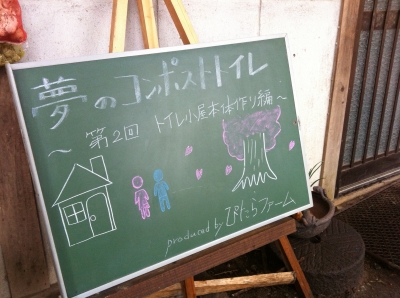 夢のコンポストトイレ
〜第2回 トイレ小屋本体作り編〜
produced by ぴたらファーム